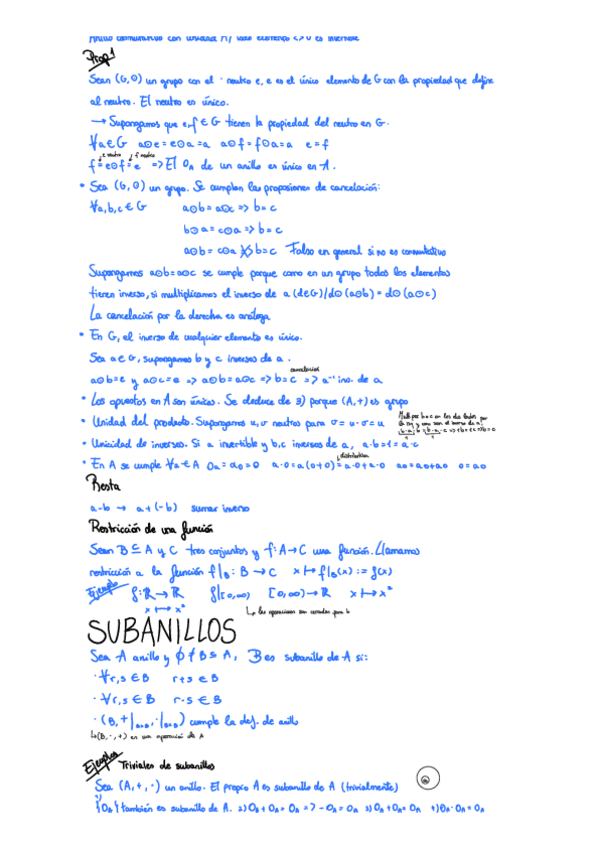 Anillo conmutativo con unidad A / todo elemento <>0 es invertible
Prop 1
Sean (G,⊙) un grupo con el · neutro e, e es el único elemento de G con la propiedad que define
al neutro. El neutro es único.
→ Supongamos que e,f ∈ G tienen la propiedad del neutro en G.
∀a∈G a⊙e = e⊙a = a a⊙f = f⊙a = a e = f
e neutro f neutro
f = e⊙f = e => El 0A de un anillo es único en A.
• Sea (G,⊙) un grupo. Se cumplen las proposiones de cancelación:
∀a,b,c ∈ G a⊙b = a⊙c => b = c
b⊙a = c⊙a => b = c
a⊙b = c⊙a ≠> b = c Falso en general si no es conmutativo
Supongamos a⊙b = a⊙c se cumple porque como en un grupo todos los elementos
tienen inverso, si multiplicamos el inverso de a (d∈G) / d⊙(a⊙b) = d⊙(a⊙c)
La cancelación por la derecha es análoga
• En G, el inverso de cualquier elemento es único.
Sea a∈G, supongamos b y c inversos de a.
cancelación
a⊙b = e y a⊙c = e => a⊙b = a⊙c => b = c => a⁻¹ inv. de a
• Los opuestos en A son únicos. Se deduce de 3) porque (A,+) es grupo
• Unidad del producto. Supongamos u, v neutros para v = u·v = u
• Unicidad de inversos. Si a invertible y b,c inversos de a, a·b = 1 = a·c
distributiva
• En A se cumple ∀a ∈ A 0a = a0 = 0 a·0 = a(0+0) = a·0 + a·0 a0 = a0 + a0 0 = a0
Resta
a-b → a+(-b) sumar inverso
Restricción de una función
Sean B ⊆ A y C tres conjuntos y f: A → C una función. Llamamos
restricción a la función f|B : B → C x ↦ f|B(x) := f(x)
Ejemplo f: ℝ → ℝ f|[0,∞) [0,∞) → ℝ x ↦ x²
x ↦ x²
↳ las operaciones son cerradas para b
SUBANILLOS
Sea A anillo y ∅ ≠ B ⊆ A, B es subanillo de A si:
· ∀r,s ∈ B r+s ∈ B
· ∀r,s ∈ B r·s ∈ B
· (B, +|BxB, ·|BxB) cumple la def. de anillo
↳ (B,·,+) es una operación de A
Ejemplos Triviales de subanillos
Sea (A,+,·) un anillo. El propio A es subanillo de A (trivialmente)
{0A} también es subanillo de A. 2) 0A + 0A = 0A => -0A = 0A 3) 0A + 0A = 0A 4) 0A · 0A = 0A